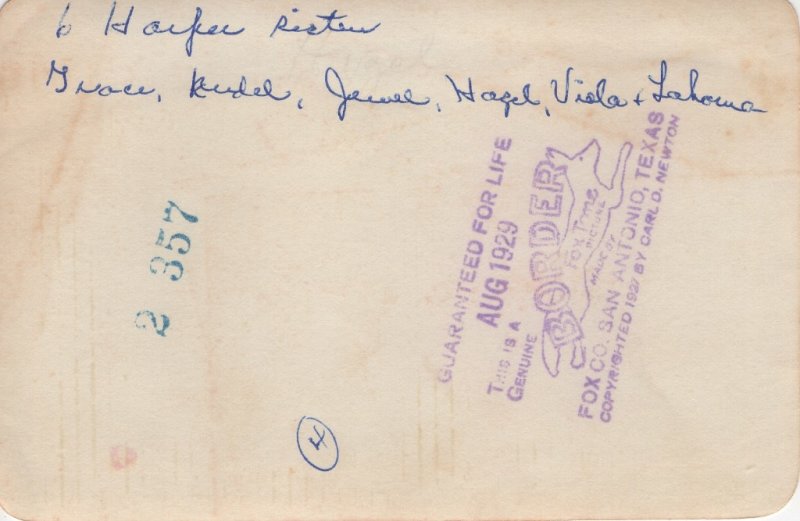 6 Harper sisters
Grace, Jewel, Hazel, Viola + Lahoma
2 357
GUARANTEED FOR LIFE
AUG 1929
THIS IS A
GENUINE
BORDER
Fox Tone
PICTURE
MADE BY
FOX CO. SAN ANTONIO, TEXAS
COPYRIGHTED 1927 BY CARL D. NEWTON
4